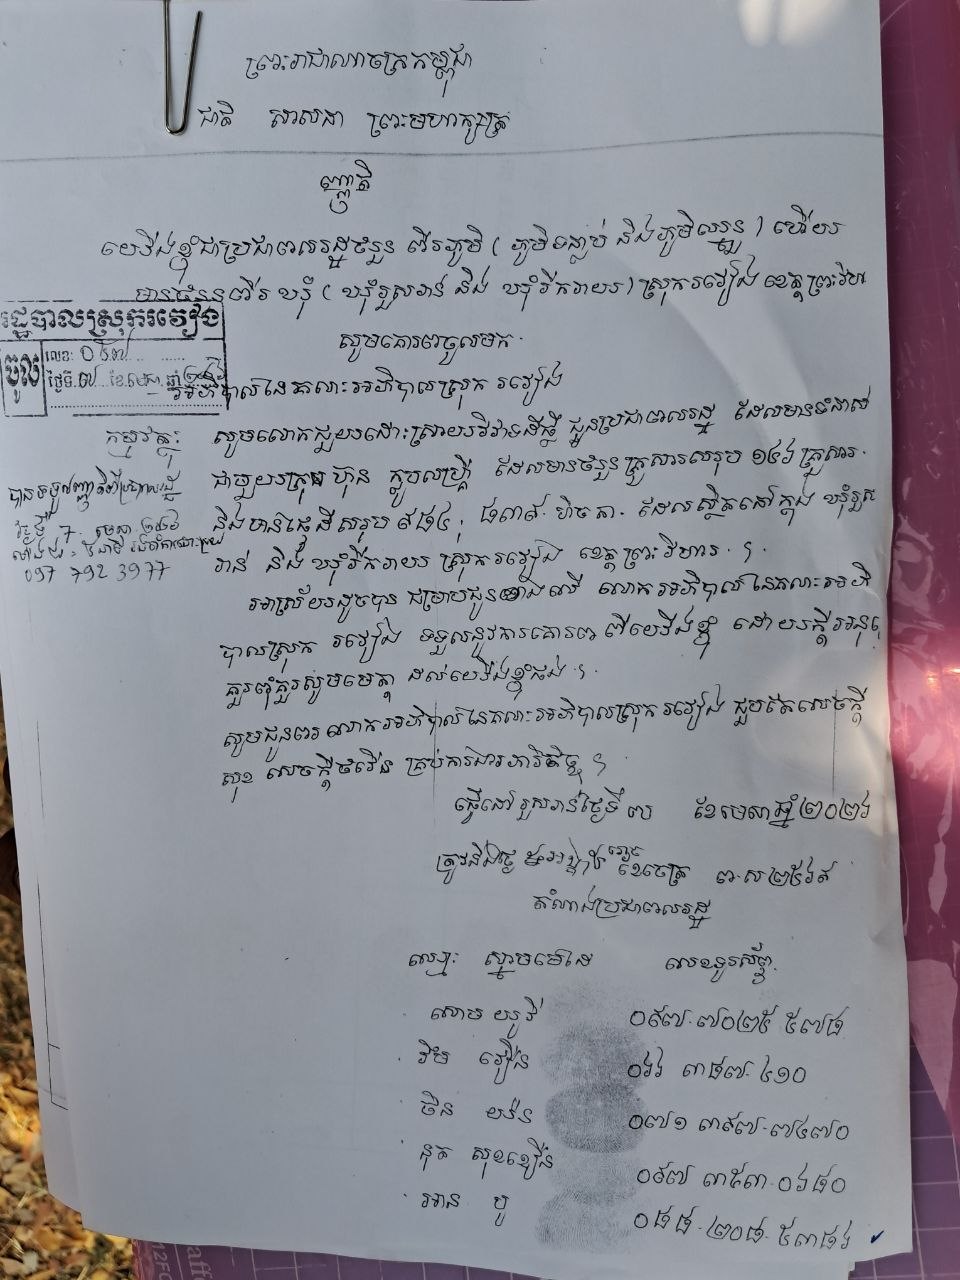 ព្រះរាជាណាចក្រកម្ពុជា
ជាតិ សាសនា ព្រះមហាក្សត្រ
ញ្ញាតិ
យើងខ្ញុំជាប្រជាពលរដ្ឋចំនួន ពីរភូមិ ( ភូមិ និងភូមិឈ្នួន ) ហើយ
មានចំនួនពីរ ឃុំ ( ឃុំរួសរាន់ និង ឃុំរីករាយ ) ស្រុករវៀង ខេត្តព្រះវិហា
សូមគោរពចូលមក
រដ្ឋបាលស្រុករវៀង
ចូល
លេខ: ០៥៧
ថ្ងៃទី. ០៧ ខែ.មេសា. ឆ្នាំ
អភិបាលនៃគណៈអភិបាលស្រុក រវៀង
កម្មវត្ថុ: សូមលោកជួយដោះស្រាយវិវាទដីធ្លី ជូនប្រជាពលរដ្ឋ ដែលមានទំនាស់
ជាមួយក្រុមហ៊ុន ដែលមានចំនួនគ្រួសារសរុប ១៤៦ គ្រួសារ
និងមានផ្ទៃដីសរុប ៩៨៤, ៨៣៩ ហិចតា ដែលស្ថិតនៅក្នុង ឃុំរួស
រាន់ និង ឃុំរីករាយ ស្រុករវៀង ខេត្តព្រះវិហារ ។
7
097 792 3977
អាស្រ័យដូចបាន ជម្រាបជូនខាងលើ លោកអភិបាលនៃគណៈអភិ
បាលស្រុក រវៀង ទទួលនូវការគោរព ពីយើងខ្ញុំ ដោយក្តីអនុ
គួរពុំគួរសូមមេត្តា ដល់យើងខ្ញុំផង ។
សូមជូនពរ លោកអភិបាលនៃគណៈអភិបាលស្រុករវៀង ជួបតែសេចក្តី
សុខ សេចក្តីចំរើន គ្រប់ការងារ ។
ធ្វើនៅ រួសរាន់ថ្ងៃទី ៣ ខែមេសាឆ្នាំ២០២៦
ត្រូវនឹងថ្ងៃ ខែចេត្រ ព.ស ២៥៦៩
តំណាងប្រជាពលរដ្ឋ
ឈ្មោះ ស្នាមមេដៃ លេខទូរស័ព្ទ
សោម យូរី ០៩៧ ៧០២៥ ៥៧៨
រឹម វៀន ០៦៦ ៣៨៧ ៤១០
ចិន យ៉ន ០៧១ ៣៩៧ ៧៤៧០
នុត សុខខឿន ០៩៧ ៣៥៣ ០៦៨០
អាន បូ ០៨៨ ២០៨ ៥៣៨៦